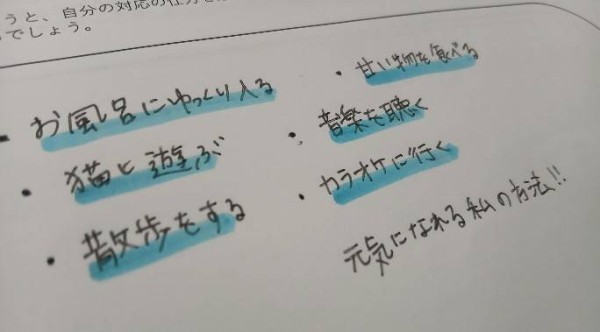 うと、自分の対応の仕方を
でしょう。
・お風呂にゆっくり入る
・猫と遊ぶ
・散歩をする
・甘い物を食べる
・音楽を聴く
・カラオケに行く
元気になれる私の方法!!